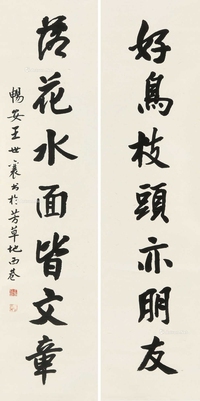 好鳥枝頭亦朋友
落花水面皆文章
暢安王世襄書於芳草地西巷